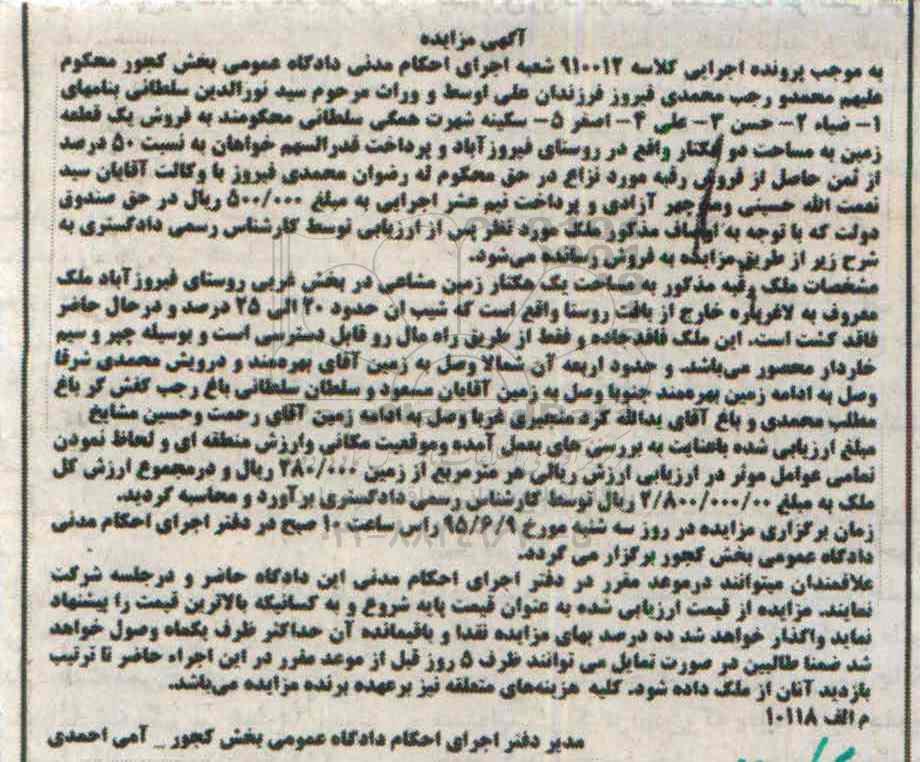 آگهی مزایده
به موجب پرونده اجرایی کلاسه ۹۱۰۰۱۲ شعبه اجرای احکام مدنی دادگاه عمومی بخش کجور محکوم
علیهم محمدو رجب محمدی فیروز فرزندان علی اوسط و وراث مرحوم سید نورالدین سلطانی بنامهای
۱- ضیاء ۲- حسن ۳- علی ۴- اصغر ۵- سکینه شهرت همگی سلطانی محکومند به فروش یک قطعه
زمین به مساحت دو هکتار واقع در روستای فیروزآباد و پرداخت قدرالسهم خواهان به نسبت ۵۰ درصد
از ثمن حاصل از فروش رقبه مورد نزاع در حق محکوم له رضوان محمدی فیروز با وکالت آقایان سید
نعمت الله حسینی ومنوچهر آزادی و پرداخت نیم عشر اجرایی به مبلغ ۵۰۰/۰۰۰ ریال در حق صندوق
دولت که با توجه به اوصاف مذکور ملک مورد نظر پس از ارزیابی توسط کارشناس رسمی دادگستری به
شرح زیر از طریق مزایده به فروش رسانده می‌شود.
مشخصات ملک رقبه مذکور به مساحت یک هکتار زمین مشاعی در بخش غربی روستای فیروزآباد ملک
معروف به لاغرپاره خارج از بافت روستا واقع است که شیب ان حدود ۲۰ الی ۲۵ درصد و درحال حاضر
فاقد کشت است. این ملک فاقدجاده و فقط از طریق راه مال رو قابل دسترسی است و بوسیله چپر و سیم
خاردار محصور می‌باشد. و حدود اربعه آن شمالا وصل به زمین آقای بهره‌مند و درویش محمدی شرقا
وصل به ادامه زمین بهره‌مند جنوبا وصل به زمین آقایان مسعود و سلطان سلطانی باغ رجب کفش گر باغ
مطلب محمدی و باغ آقای یدالله کرد منجیری غربا وصل به ادامه زمین آقای رحمت وحسین مشایخ
مبلغ ارزیابی شده باعنایت به بررسی های بعمل آمده وموقعیت مکانی وارزش منطقه ای و لحاظ نمودن
تمامی عوامل موثر در ارزیابی ارزش ریالی هر مترمربع از زمین ۲۸۰/۰۰۰ ریال و درمجموع ارزش کل
ملک به مبلغ ۲/۸۰۰/۰۰۰/۰۰ ریال توسط کارشناس رسمی دادگستری برآورد و محاسبه گردید.
زمان برگزاری مزایده در روز سه شنبه مورخ ۹۵/۶/۹ راس ساعت ۱۰ صبح در دفتر اجرای احکام مدنی
دادگاه عمومی بخش کجور برگزار می گردد.
علاقمندان میتوانند درموعد مقرر در دفتر اجرای احکام مدنی این دادگاه حاضر و درجلسه شرکت
نمایند. مزایده از قیمت ارزیابی شده به عنوان قیمت پایه شروع و به کسانیکه بالاترین قیمت را پیشنهاد
نماید واگذار خواهد شد ده درصد بهای مزایده نقدا و باقیمانده آن حداکثر ظرف یکماه وصول خواهد
شد ضمنا طالبین در صورت تمایل می توانند ظرف ۵ روز قبل از موعد مقرر در این اجراء حاضر تا ترتیب
بازدید آنان از ملک داده شود. کلیه هزینه‌های متعلقه نیز برعهده برنده مزایده می‌باشد.
م الف ۱۰۱۱۸
مدیر دفتر اجرای احکام دادگاه عمومی بخش کجور _ آمی احمدی